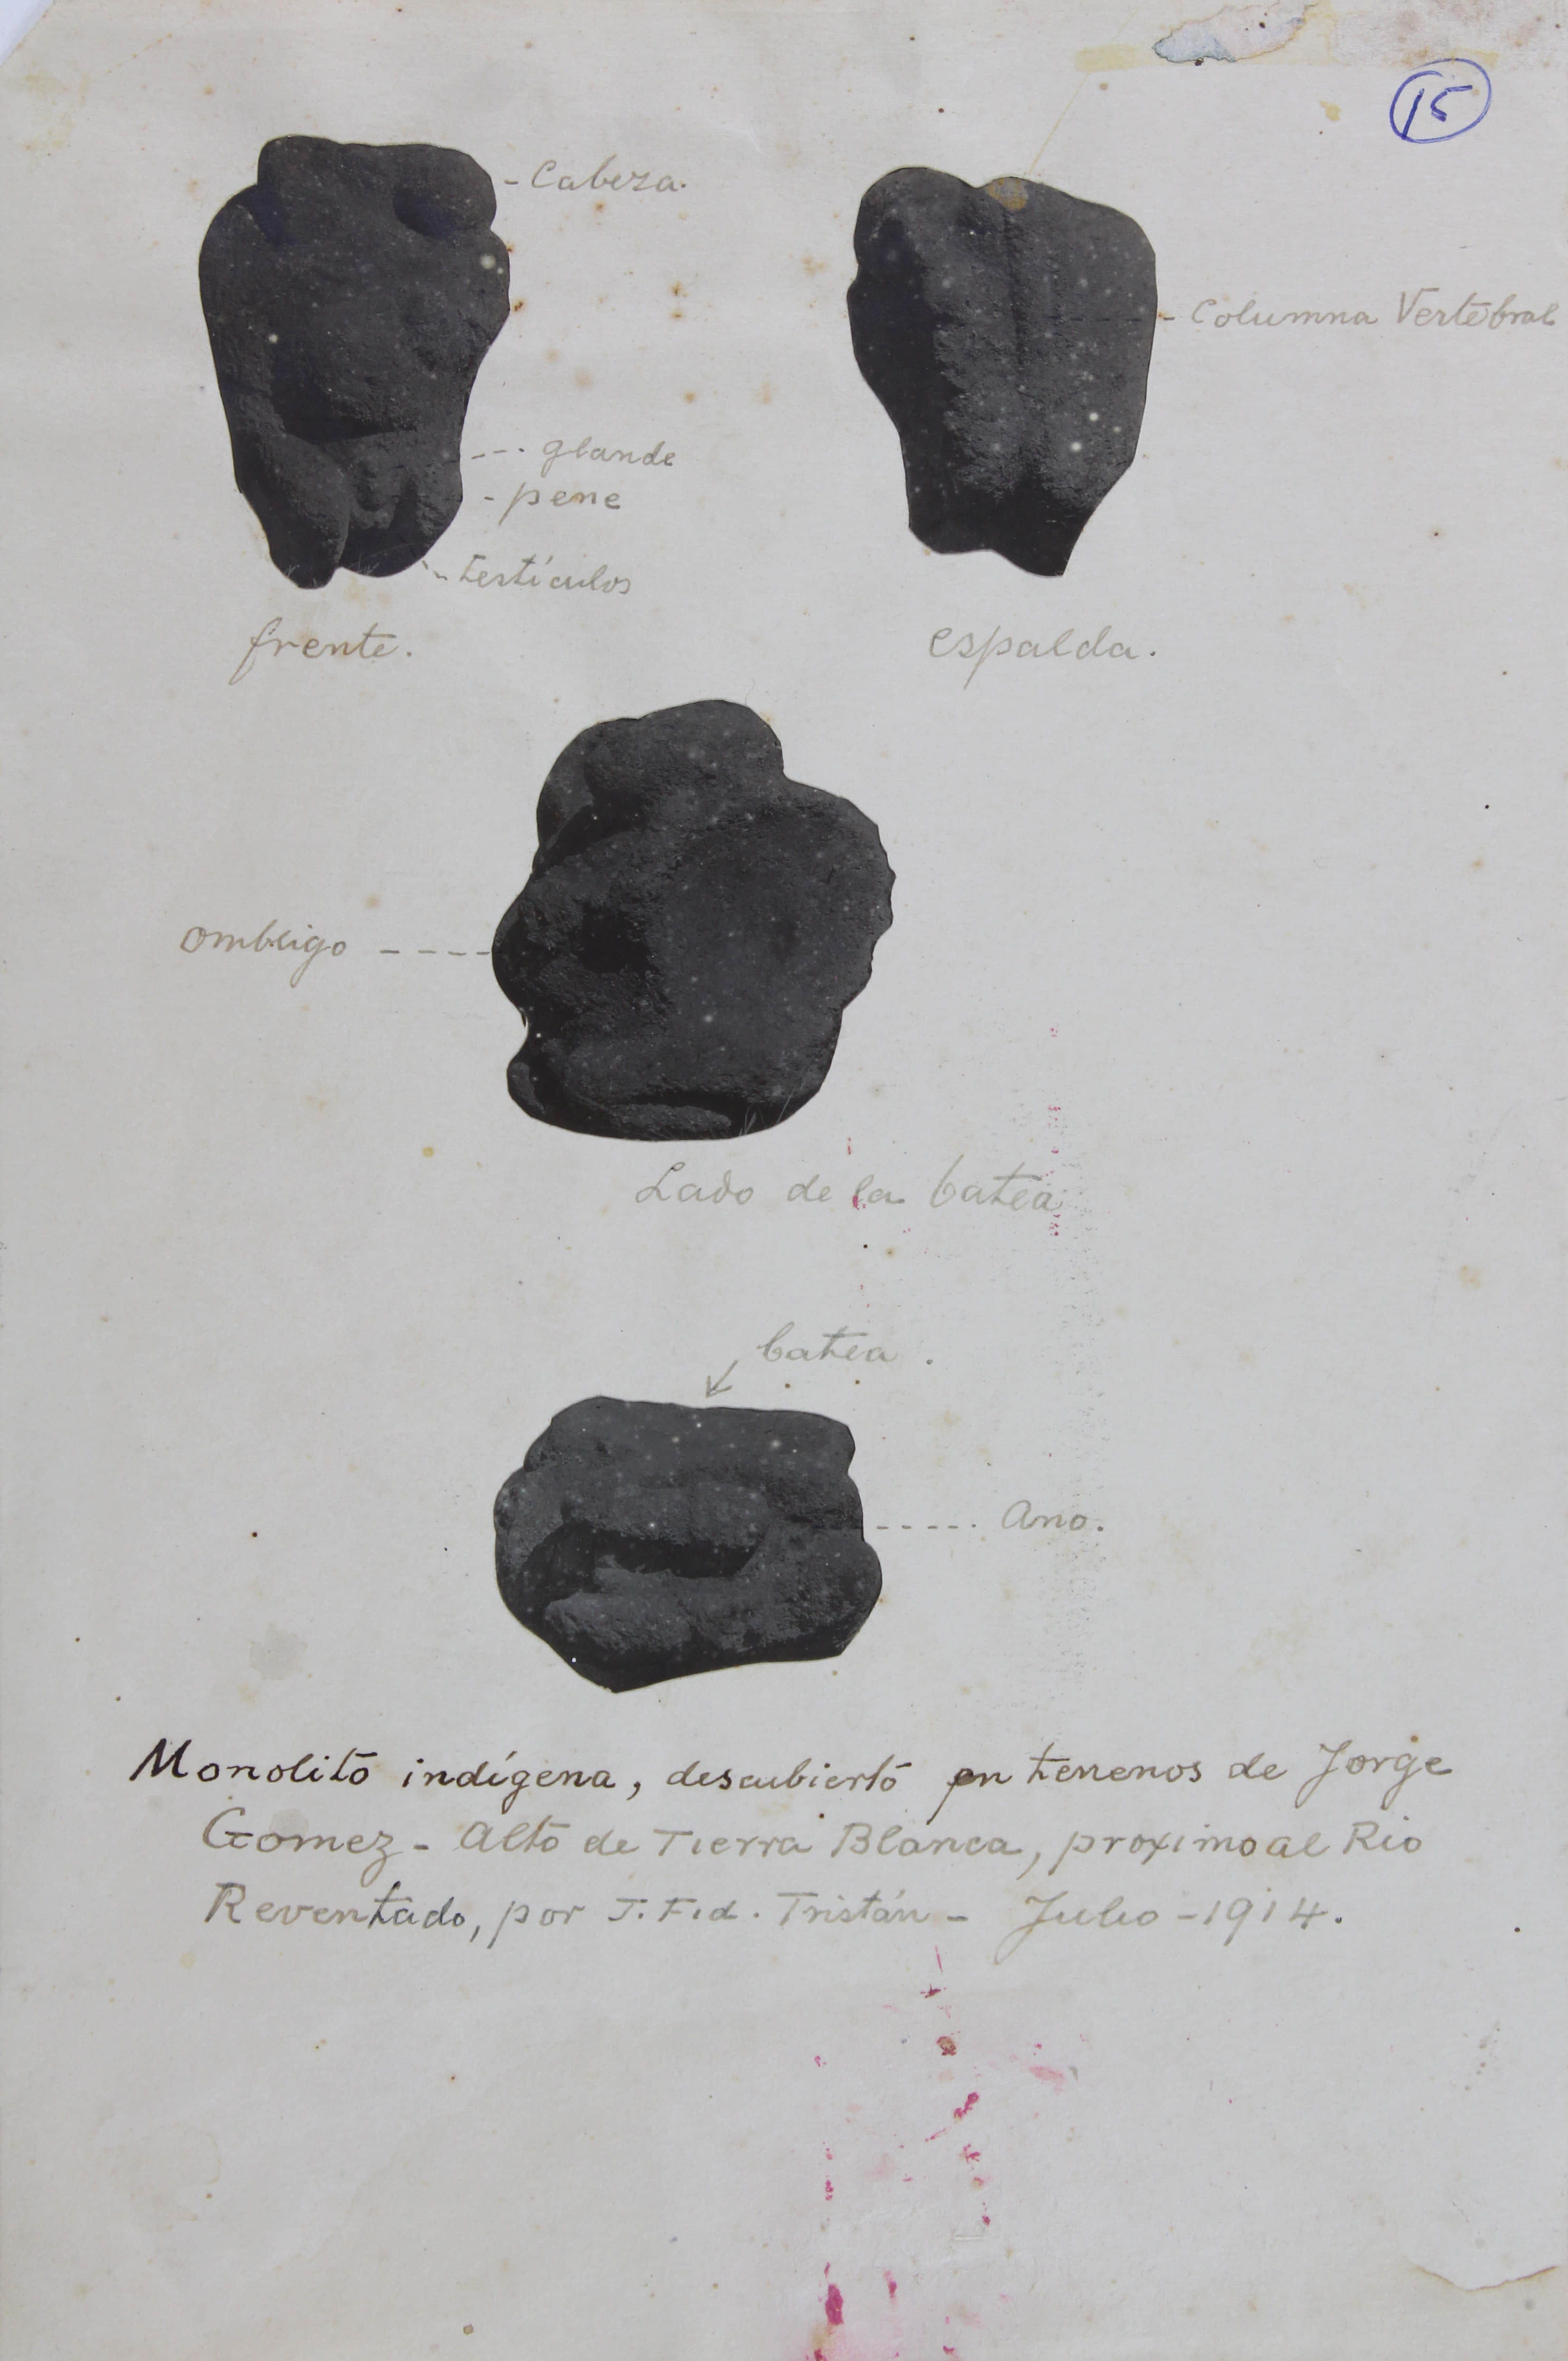 15
- Cabeza.
- Columna Vertebral
--- glande
- pene
-- testículos
frente.
espalda.
ombligo ----
Lado de la batea
batea.
----- Ano.
Monolito indígena, descubierto en terrenos de Jorge
Gomez - Alto de Tierra Blanca, proximo al Rio
Reventado, por J. Fid. Tristán - Julio - 1914.